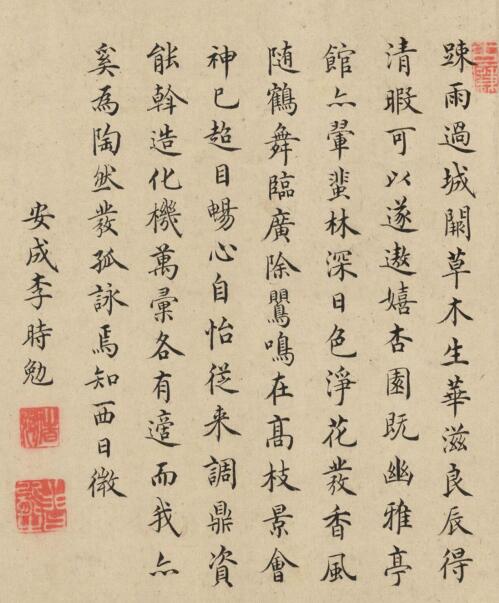 踈雨過城闕草木生華滋良辰得
清暇可以遂遨嬉杏園既幽雅亭
館亦翬蜚林深日色淨花發香風
随鶴舞臨廣除鸎鳴在高枝景會
神已超目暢心自怡從来調鼎資
能斡造化機萬彙各有適而我亦
奚為陶然發孤詠焉知西日微
安成李時勉